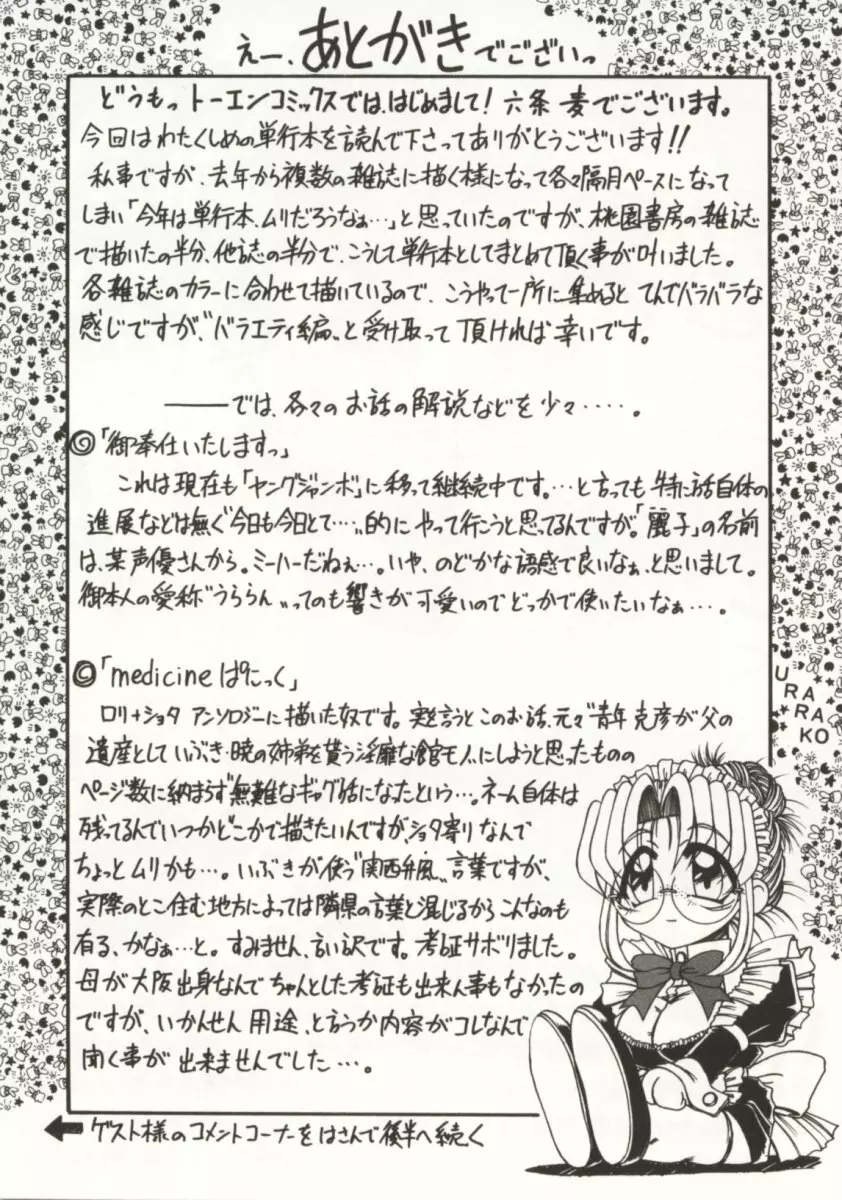 えー、あとがきでございっ
どうもっ トーエンコミックスでは、はじめまして! 六条 麦でございます。
今回はわたくしめの単行本を読んで下さってありがとうございます!!
私事ですが、去年から複数の雑誌に描く様になって各々隔月ペースになって
しまい「今年は単行本、ムリだろうなぁ…」と思っていたのですが、桃園書房の雑誌
で描いたの半分、他誌の半分で、こうして単行本としてまとめて頂く事が叶いました。
各雑誌のカラーに合わせて描いているので、こうやって一所に集めると てんでバラバラな
感じですが、〝バラエティ編〟と受け取って頂ければ幸いです。
――では、各々のお話の解説などを少々……。
◎「御奉仕いたしますっ」
これは現在も「ヤングジャンボ」に移って継続中です。…と言っても 特に話自体の
進展などは無く〝今日も今日とて…〟的にやって行こうと思ってるんですが。「麗子」の名前
は、某声優さんから。ミーハーだねぇ…。いや、のどかな語感で良いなぁ、と思いまして。
御本人の愛称〝うららん〟ってのも響きが可愛いのでどっかで使いたいなぁ…。
◎「medicineぱにっく」
ロリ+ショタ アンソロジーに描いた奴です。実を言うとこのお話、元々〝青年 克彦が父の
遺産として いぶき・暁の姉弟を貰う淫靡な館モノ〟にしようと思ったものの
ページ数に納まらず〝無難なギャグ話になったという…。ネーム自体は
残ってるんでいつかどこかで描きたいんですが、ショタ寄りなんで
ちょっとムリかも…。いぶきが使う〝関西弁風〟言葉ですが、
実際のとこ住む地方によっては隣県の言葉と混じるからこんなのも
有る、かなぁ…と。すみません、言い訳です。考証サボりました。
母が大阪出身なんで ちゃんとした考証も出来ん事もなかったの
ですが、いかんせん 用途、と言うか内容がコレなんで
聞く事が出来ませんでした…。
URARAKO
ゲスト様のコメントコーナーをはさんで後半へ続く